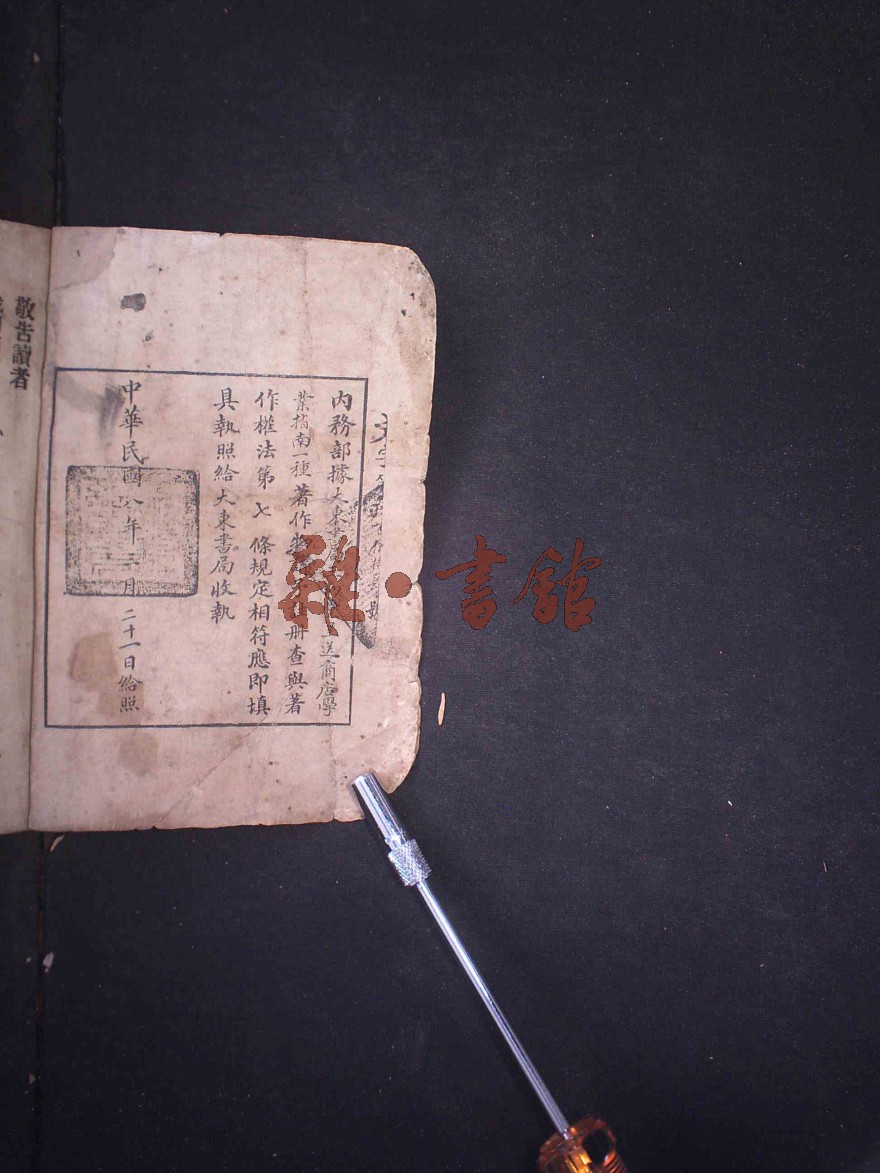 內務部據大東書 送商店學
業指南一種著作 册查與著
作權法第七條規定相符應即填
具執照給大東書局收執
中華民國八年三月二十一日給照
敬告讀者
雜·書館